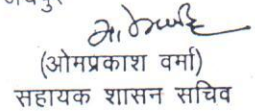 (ओमप्रकाश वर्मा)
सहायक शासन सचिव